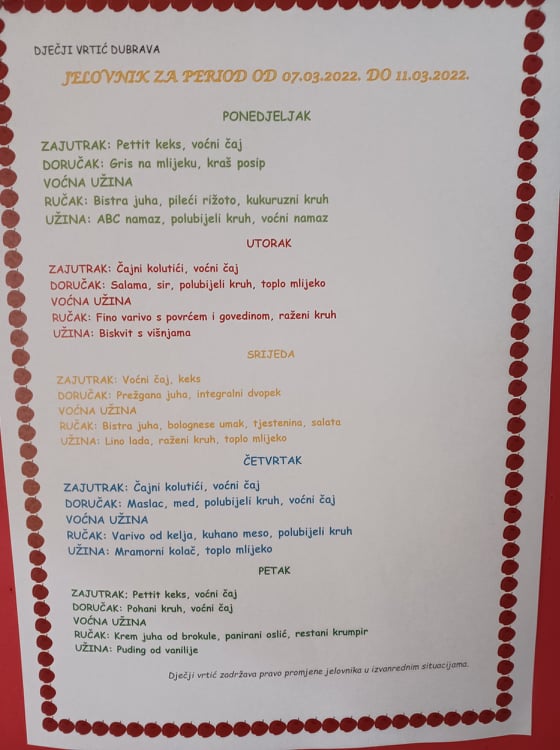 DJEČJI VRTIĆ DUBRAVA
JELOVNIK ZA PERIOD OD 07.03.2022. DO 11.03.2022.
PONEDJELJAK
ZAJUTRAK: Pettit keks, voćni čaj
DORUČAK: Gris na mlijeku, kraš posip
VOĆNA UŽINA
RUČAK: Bistra juha, pileći rižoto, kukuruzni kruh
UŽINA: ABC namaz, polubijeli kruh, voćni namaz
UTORAK
ZAJUTRAK: Čajni kolutići, voćni čaj
DORUČAK: Salama, sir, polubijeli kruh, toplo mlijeko
VOĆNA UŽINA
RUČAK: Fino varivo s povrćem i govedinom, raženi kruh
UŽINA: Biskvit s višnjama
SRIJEDA
ZAJUTRAK: Voćni čaj, keks
DORUČAK: Prežgana juha, integralni dvopek
VOĆNA UŽINA
RUČAK: Bistra juha, bolognese umak, tjestenina, salata
UŽINA: Lino lada, raženi kruh, toplo mlijeko
ČETVRTAK
ZAJUTRAK: Čajni kolutići, voćni čaj
DORUČAK: Maslac, med, polubijeli kruh, voćni čaj
VOĆNA UŽINA
RUČAK: Varivo od kelja, kuhano meso, polubijeli kruh
UŽINA: Mramorni kolač, toplo mlijeko
PETAK
ZAJUTRAK: Pettit keks, voćni čaj
DORUČAK: Pohani kruh, voćni čaj
VOĆNA UŽINA
RUČAK: Krem juha od brokule, panirani oslić, restani krumpir
UŽINA: Puding od vanilije
Dječji vrtić zadržava pravo promjene jelovnika u izvanrednim situacijama.